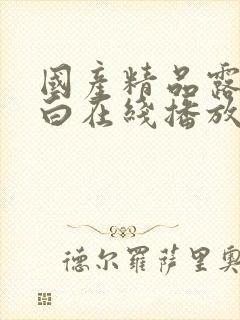 國產精品露
白在綫播放
德尔羅萨里奥